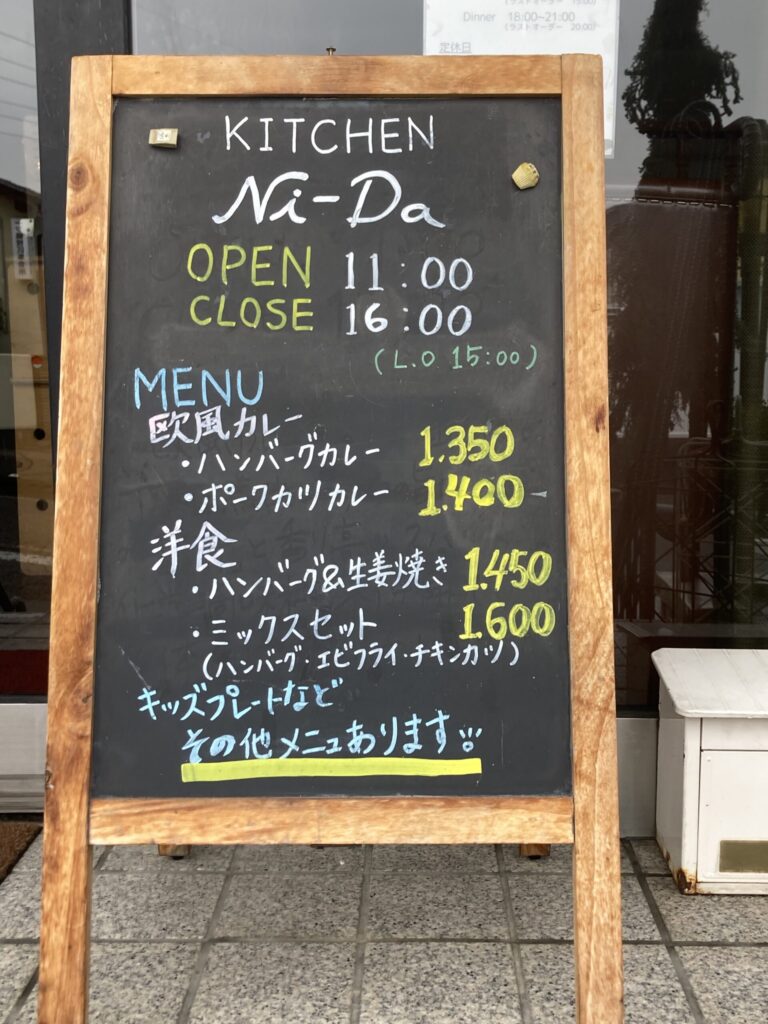 Dinner 18:00~21:00
(ラストオーダー 20:00)
定休日
KITCHEN
Ni-Da
OPEN 11:00
CLOSE 16:00
(L.O 15:00)
MENU
欧風カレー
・ハンバーグカレー 1.350
・ポークカツカレー 1.400
洋食
・ハンバーグ&生姜焼き 1.450
・ミックスセット 1.600
(ハンバーグ・エビフライ・チキンカツ)
キッズプレートなど
その他メニューあります